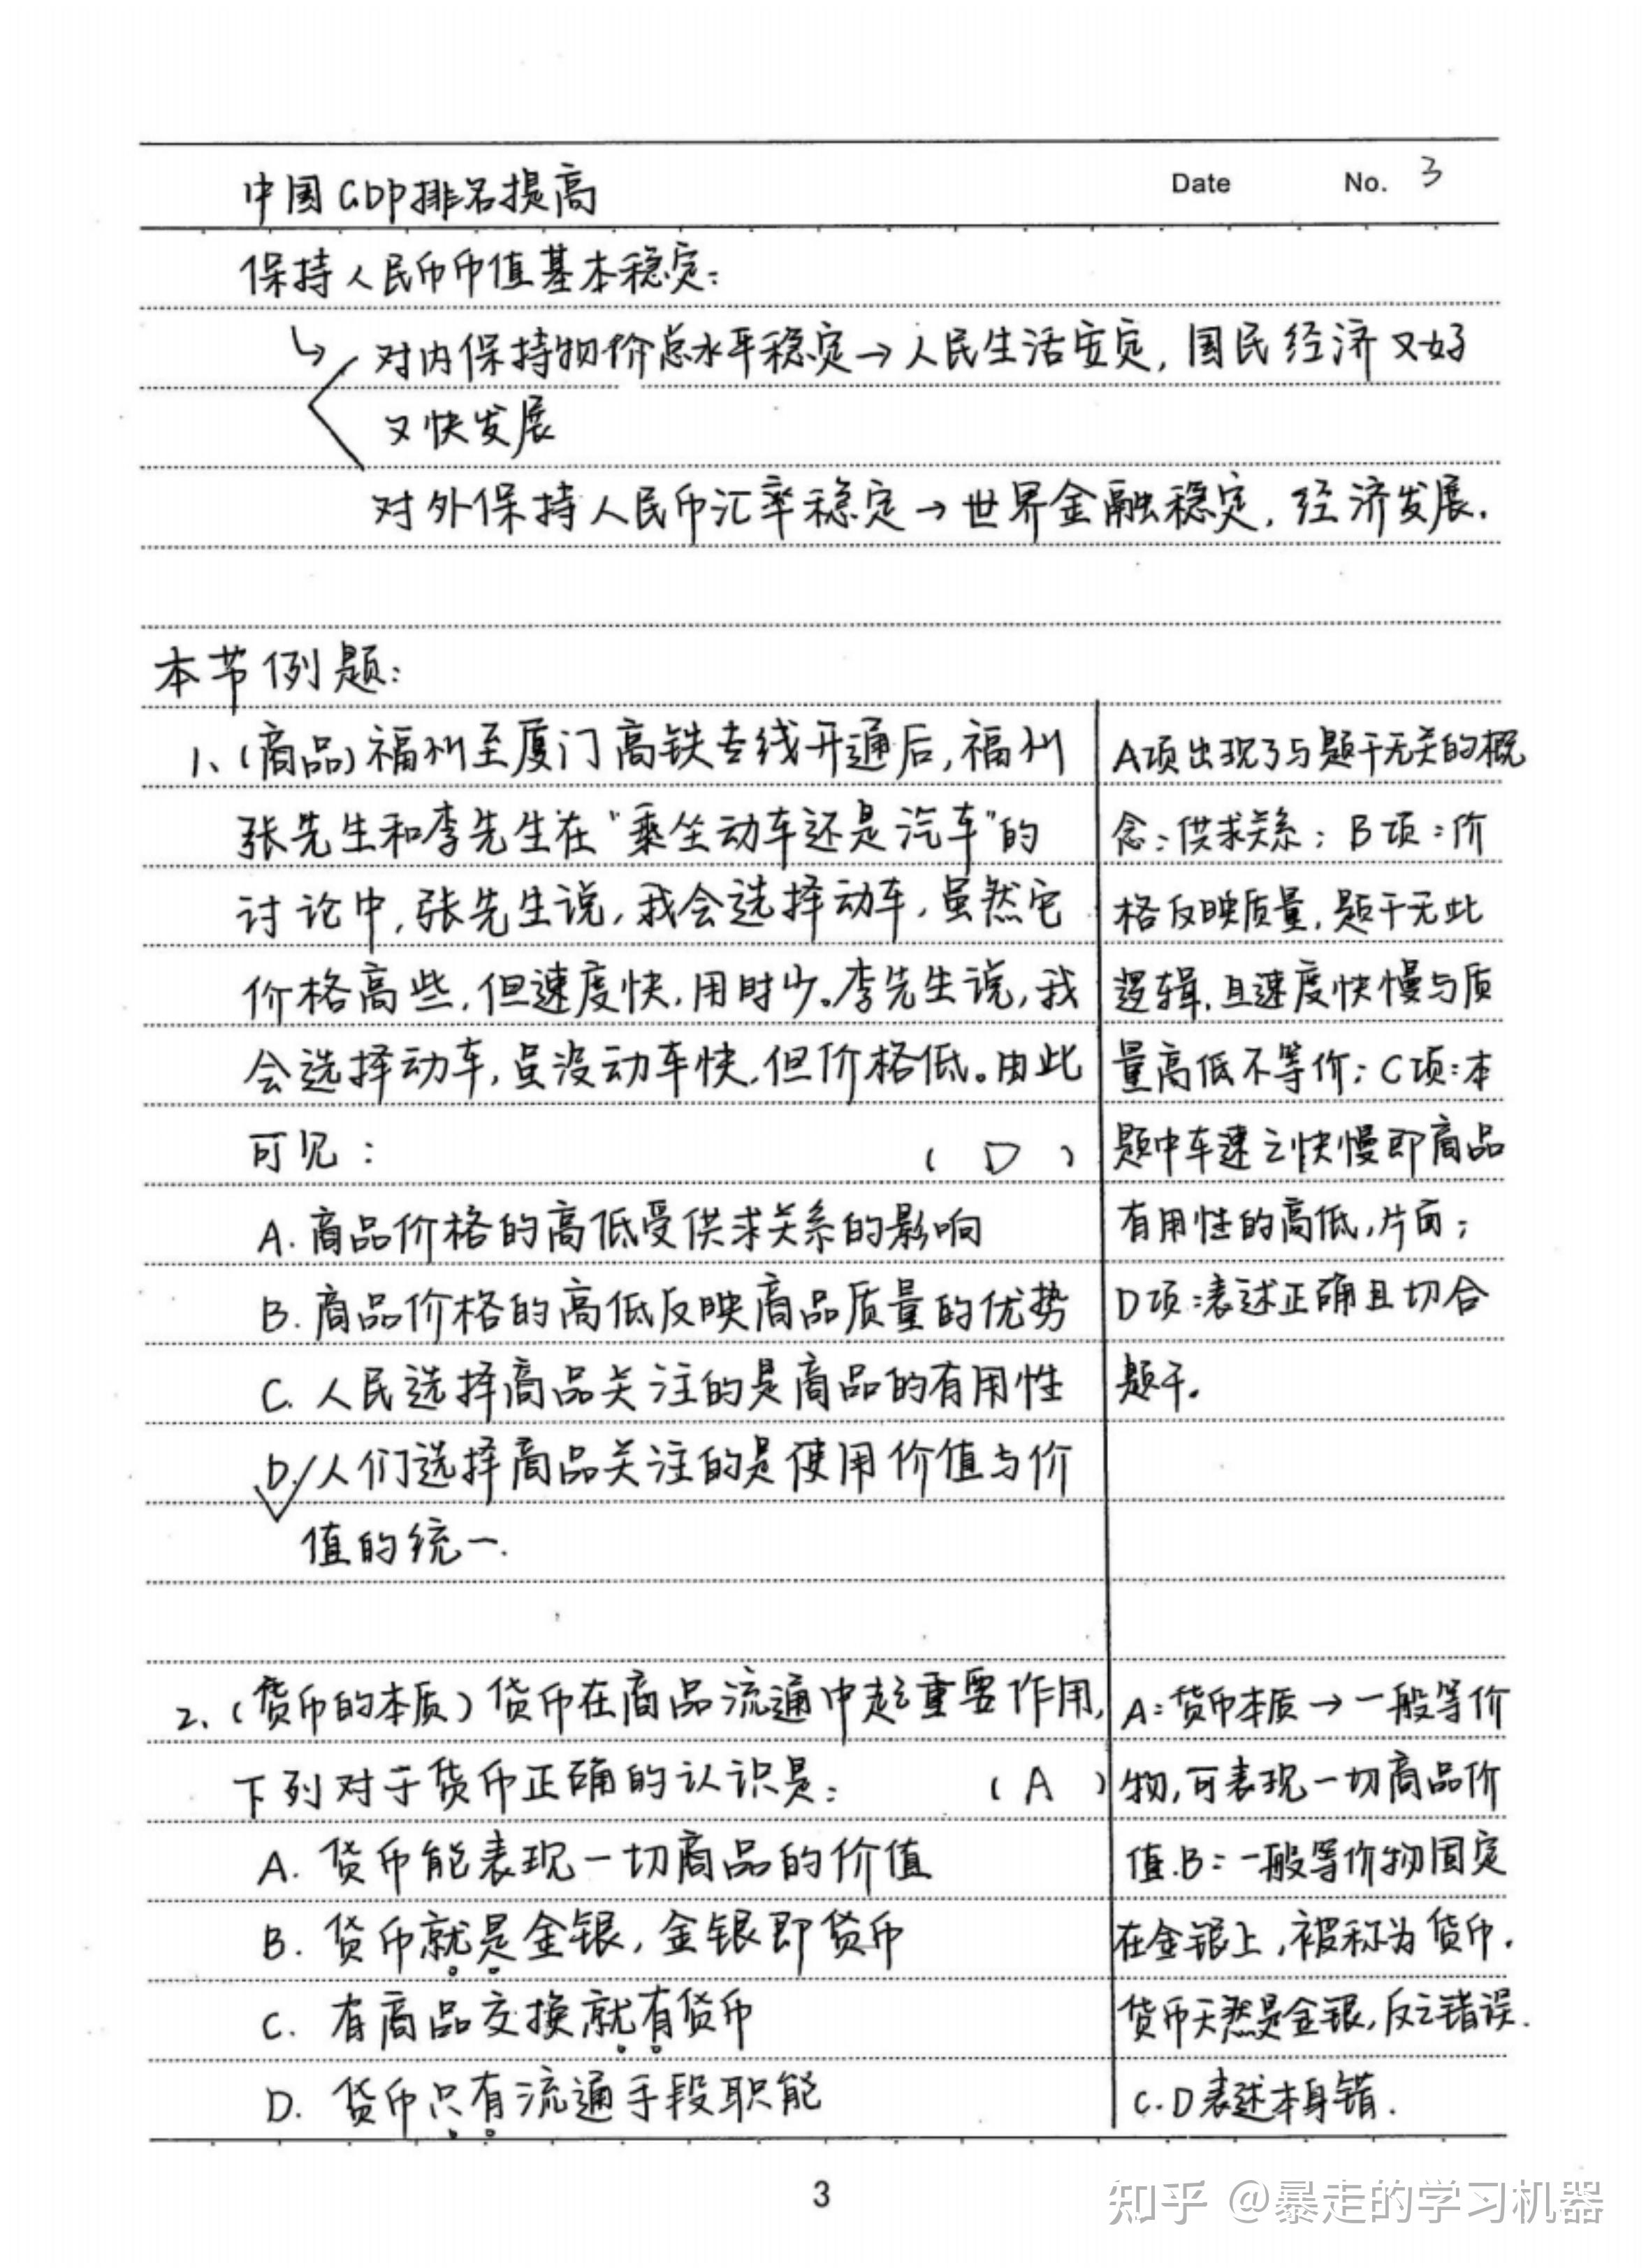 中国GDP排名提高
Date No. 3
保持人民币币值基本稳定：
对内保持物价总水平稳定→人民生活安定，国民经济又好
又快发展
对外保持人民币汇率稳定→世界金融稳定，经济发展.
本节例题：
1、(商品)福州至厦门高铁专线开通后，福州
张先生和李先生在"乘坐动车还是汽车"的
讨论中，张先生说，我会选择动车，虽然它
价格高些，但速度快，用时少。李先生说，我
会选择动车，虽没动车快，但价格低。由此
可见： ( D )
A. 商品价格的高低受供求关系的影响
B. 商品价格的高低反映商品质量的优势
C. 人民选择商品关注的是商品的有用性
D. 人们选择商品关注的是使用价值与价
值的统一.
A项出现了与题干无关的概
念：供求关系；B项：价
格反映质量，题干无此
逻辑，且速度快慢与质
量高低不等价；C项：本
题中车速之快慢即商品
有用性的高低，片面；
D项：表述正确且切合
题干。
2、(货币的本质)货币在商品流通中起重要作用，
下列对于货币正确的认识是： ( A )
A. 货币能表现一切商品的价值
B. 货币就是金银，金银即货币
C. 有商品交换就有货币
D. 货币只有流通手段职能
A：货币本质→一般等价
物，可表现一切商品价
值.B：一般等价物固定
在金银上，被称为货币.
货币天然是金银，反之错误.
C.D表述本身错.
3
知乎 @暴走的学习机器